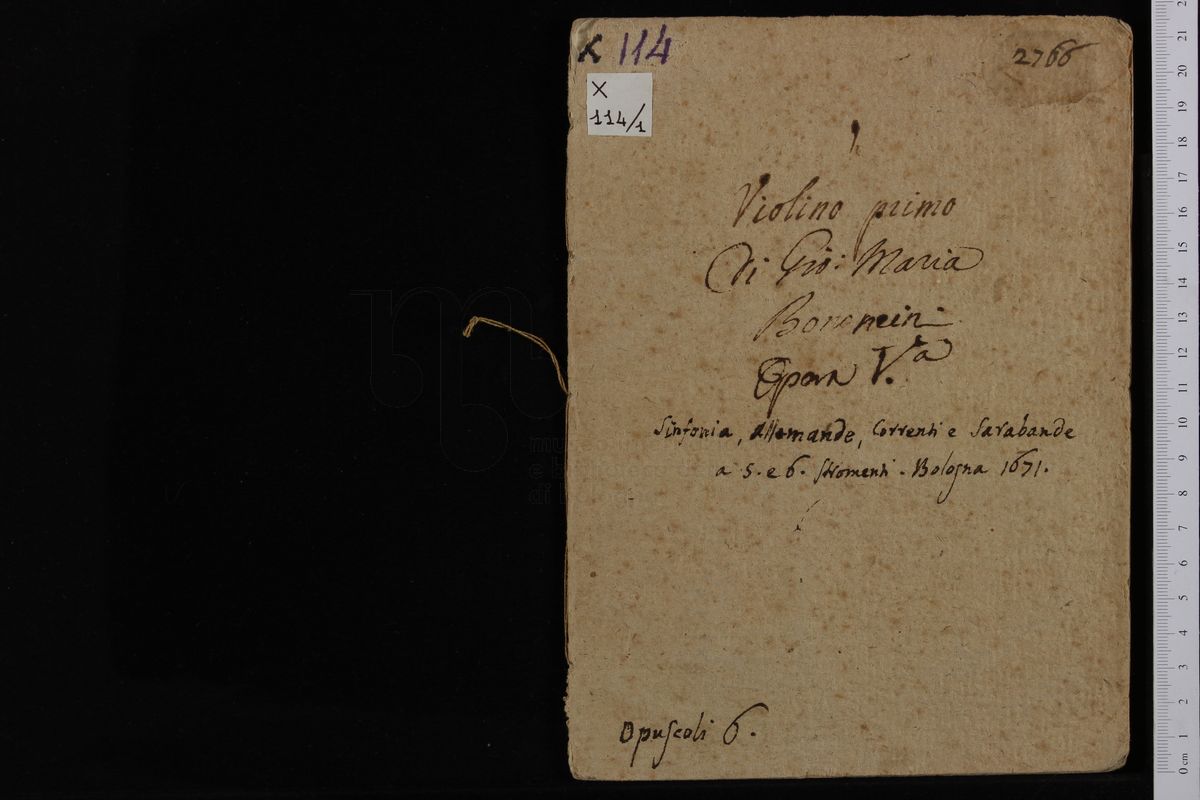 X 114
2766
X
114/1
Violino primo
Di Gio: Maria
Bononcini
Opera V.a
Sinfonia, Allemande, Correnti e Sarabande
a 5. e 6. Stromenti. Bologna 1671.
Opuscoli 6.
0 cm 1 2 3 4 5 6 7 8 9 10 11 12 13 14 15 16 17 18 19 20 21